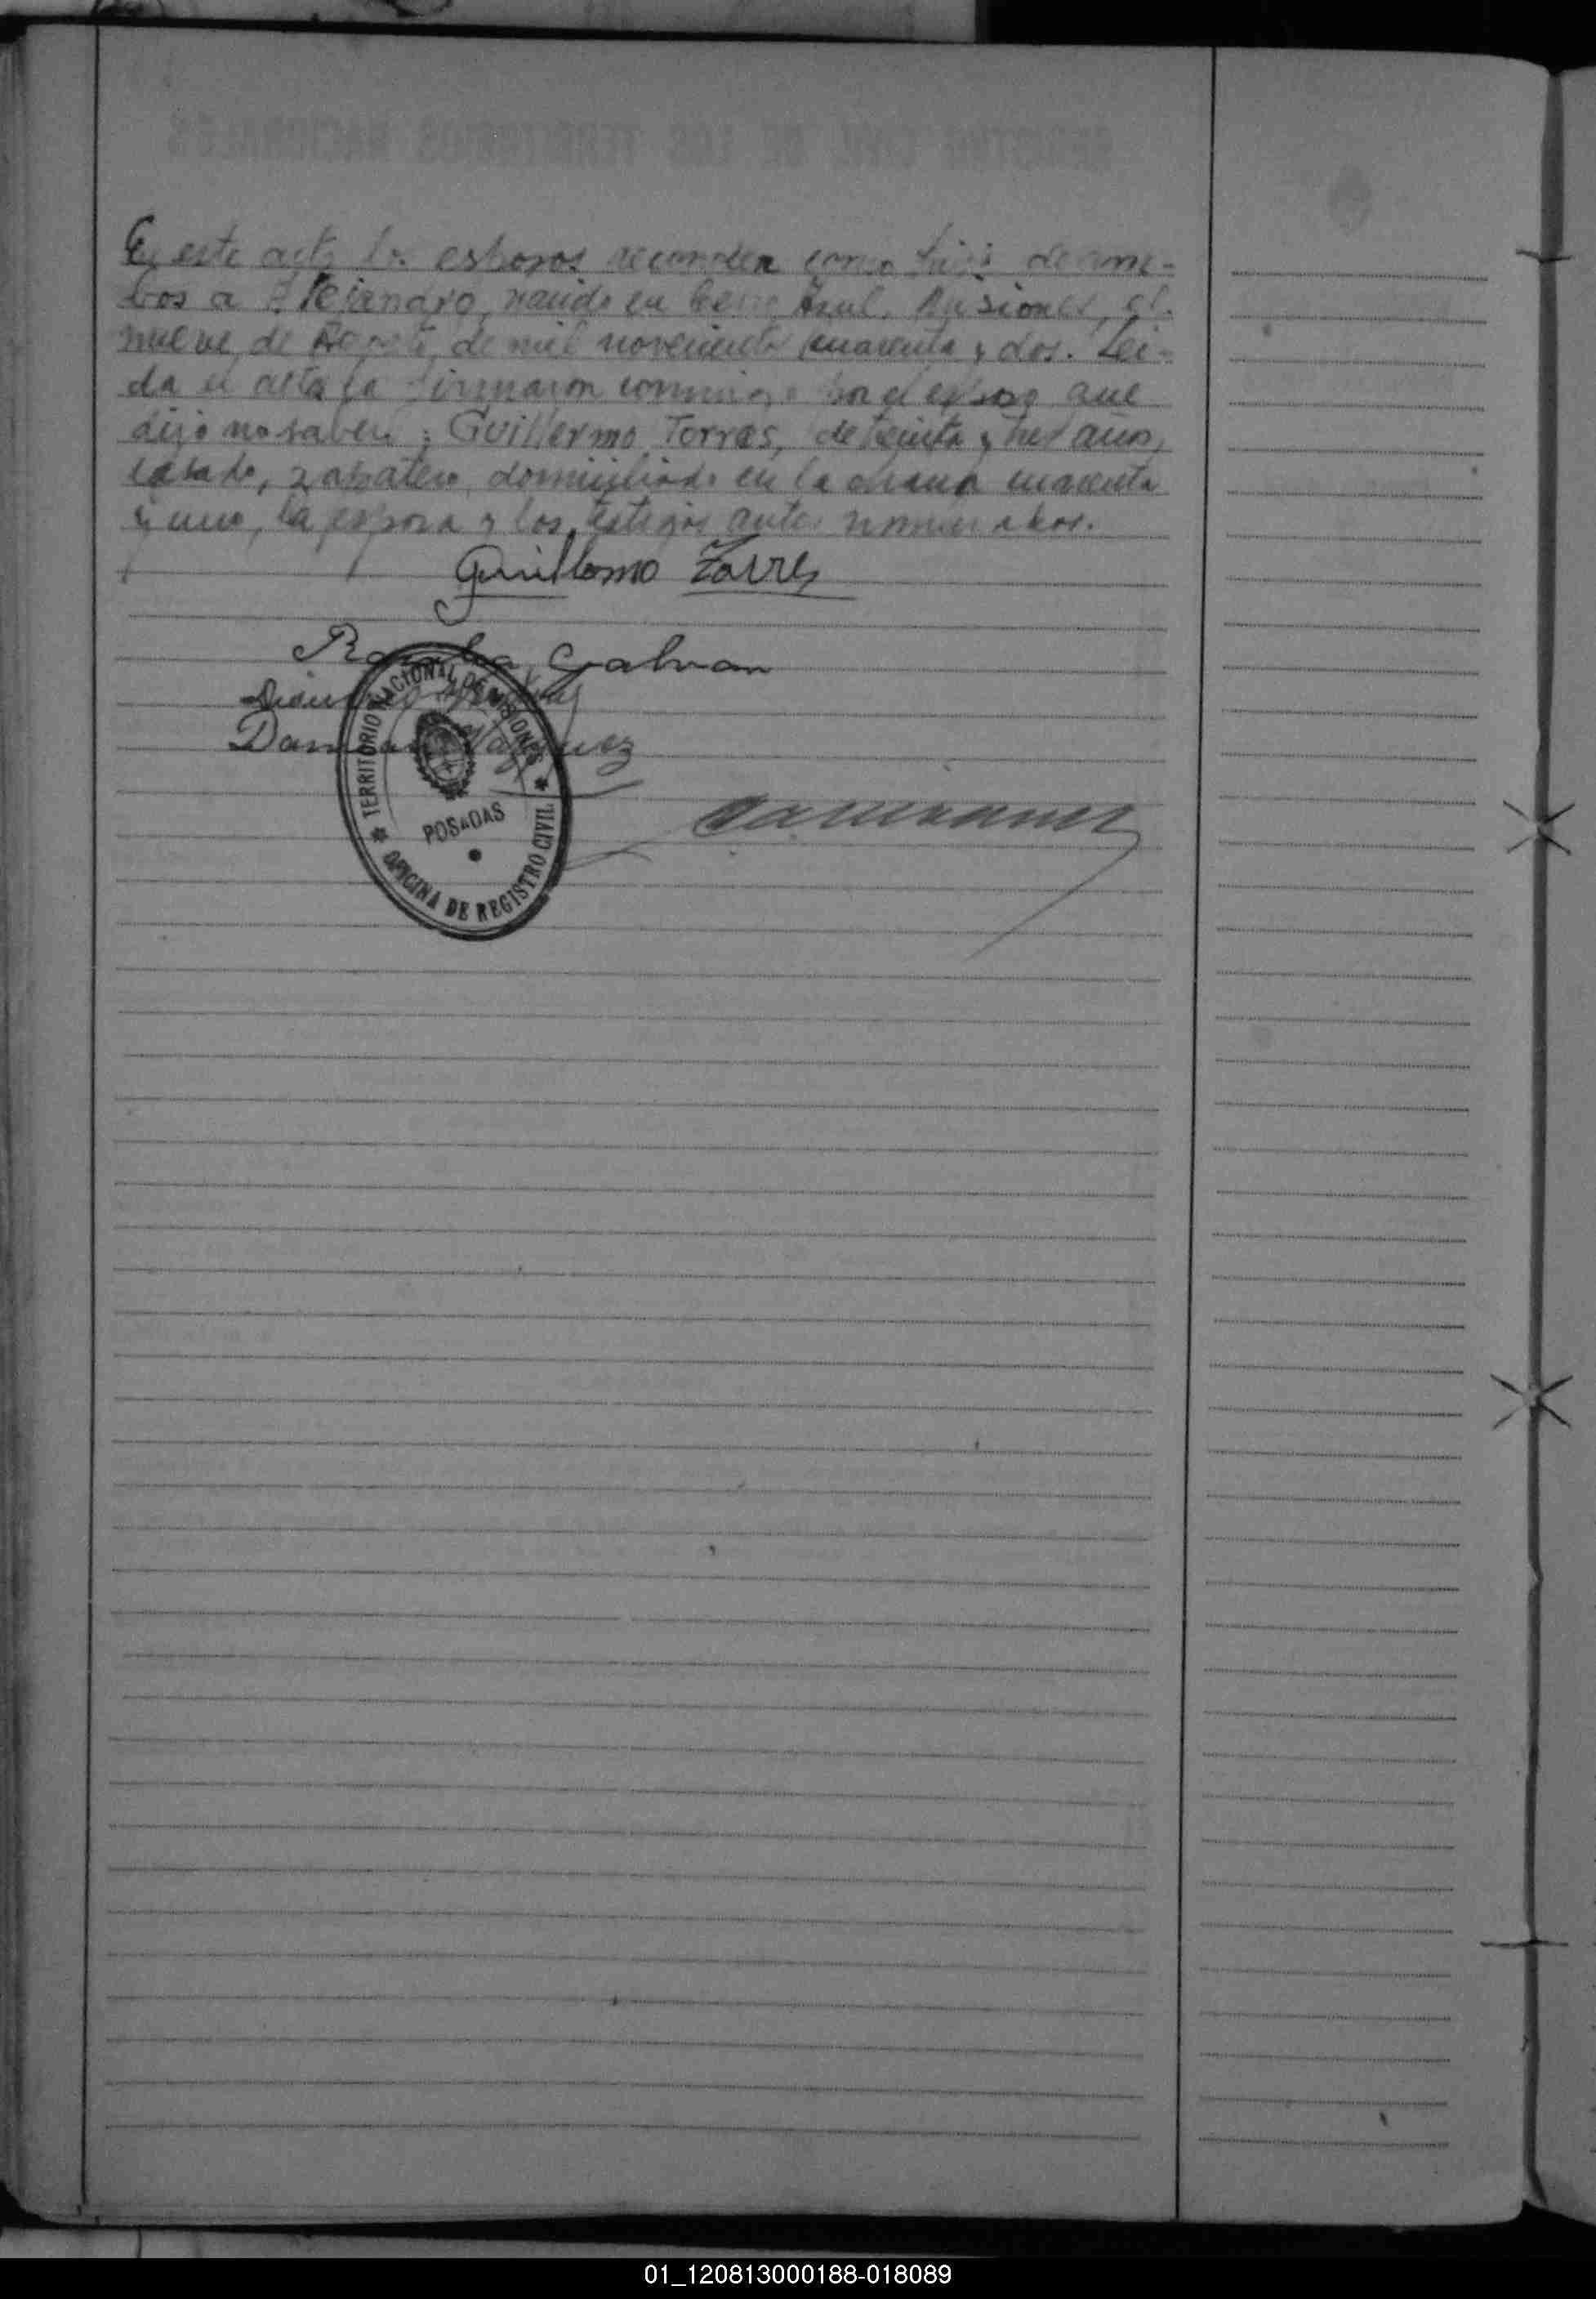 En este acto los esposos reconocen como hijo de am-
bos a Alejandro, nacido en Cerro Azul, Misiones, el
nueve de Agosto de mil novecientos cuarenta y dos. Lei-
da el acta la firmaron conmigo por el esposo que
dijo no saber: Guillermo Torres, de treinta y tres años,
casado, zapatero, domiciliado en la chacra cuarenta
y uno, la esposa y los testigos antes nombrados.
Guillermo Torres
Galvan
Damian Vazquez
TERRITORIO NACIONAL DE MISIONES
POSADAS
OFICINA DE REGISTRO CIVIL
01_120813000188-018089